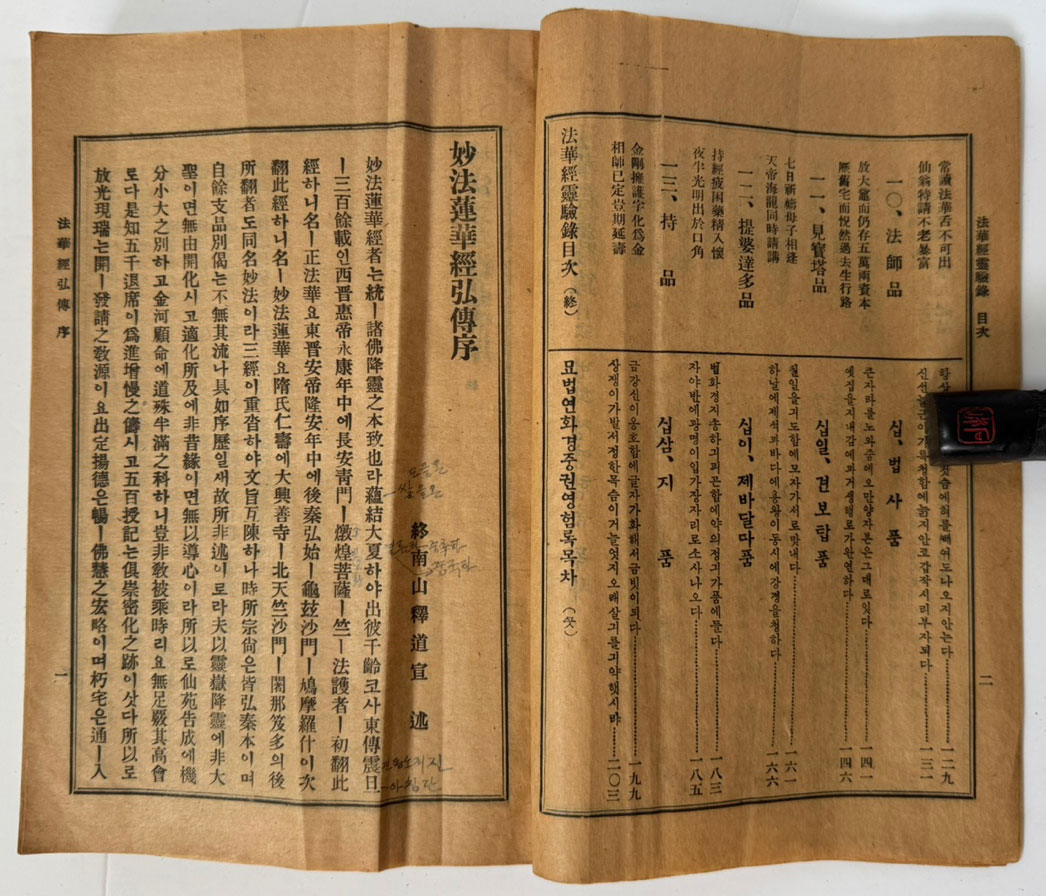 法華經靈驗錄 目次
常讀法華舌不可出
仙翁特請不老暴富
一〇、法師品
放大鼈而仍存五萬兩資本
歷舊宅而恍然過去生行路
一一、見寶塔品
七日祈禱母子相逢
天帝海龍同時請講
一二、提婆達多品
持經疲困藥精入懷
夜半光明出於口角
一三、持 品
金剛擁護字化爲金
相師已定豈期延壽
法華經靈驗錄目次（終）
혀를빼여도나오지안는다……一二九
특청함에늙지안코갑작시리부자되다……一三一
십、법사품
큰자라를노와줌에오만양자본은그대로잇다……一四一
옛집을지내감에과거생행로가완연하다……一四六
십일、견보탑품
칠일을긔도함에모자가서로맛내다……一六一
하날에제석과바다에용왕이동시에강경을청하다……一六六
십이、제바달다품
법화경지송하긔피곤함에약의정긔가품에들다……一八三
자야반에광명이입가장자리로소사나오다……一八五
십삼、지 품
금강신이옹호함에글자가화해서금빗이되다……一九九
상쟁이가발서정한목슴이거늘엇지오래살긔를긔약햇시랴……二〇三
묘법연화경중권영험록목차（끗）
二
妙法蓮華經弘傳序
終南山釋道宣 述
妙法蓮華經者는統ㅣ諸佛降靈之本致也라蘊結大夏하야出彼千齡코사東傳震旦
ㅣ三百餘載인西晋惠帝永康年中에長安靑門ㅣ燉煌菩薩ㅣ竺ㅣ法護者ㅣ初翻此
經하니名ㅣ正法華요東晋安帝隆安年中에後秦弘始ㅣ龜玆沙門ㅣ鳩摩羅什이次
翻此經하니名ㅣ妙法蓮華요隋氏仁壽에大興善寺ㅣ北天竺沙門ㅣ闍那笈多의後
所翻者도同名妙法이라三經이重沓하야文旨互陳하나時所宗尙은皆弘秦本이며
自餘支品別偈는不無其流나具如序歷일새故所非述이로라夫以靈嶽降靈에非大
聖이면無由開化시고適化所及에非昔緣이면無以導心이라所以로仙苑告成에機
分小大之別하고金河顧命에道殊半滿之科하니豈非敎被乘時리요無足覈其高會
로다是知五千退席이爲進增慢之儔시고五百授記는俱崇密化之跡이삿다所以로
放光現瑞는開ㅣ發請之敎源이요出定揚德은暢ㅣ佛慧之宏略이며朽宅은通ㅣ入
法華經弘傳 序
一